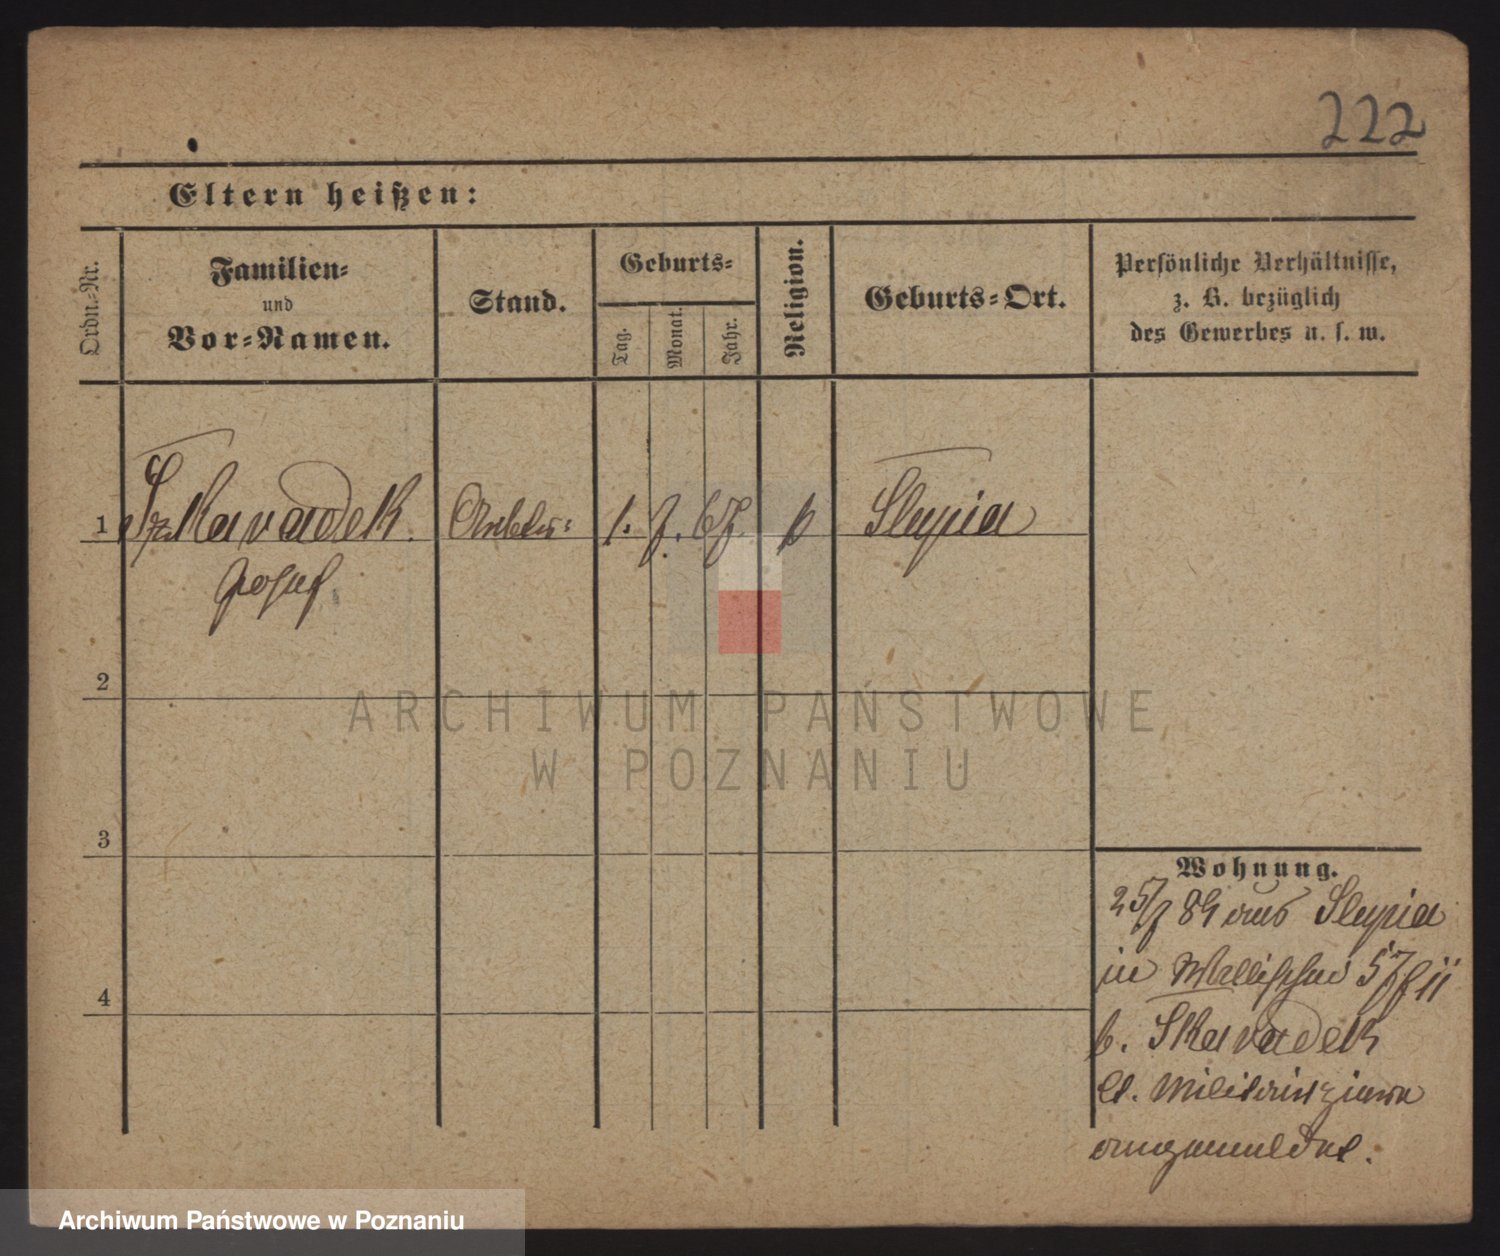 222
Eltern heißen:
Ordn.-Nr.
Familien-
und
Vor-Namen.
Stand.
Geburts-
Tag.
Monat.
Jahr.
Religion.
Geburts-Ort.
Persönliche Verhältnisse,
z. B. bezüglich
des Gewerbes u. s. w.
1
Szkaradek
Arbtr:
1. 7. 67.
k
Slupia
Josef
2
3
4
Wohnung.
25/7 84 aus Slupia
in Wallischei 57/8 II
b. Skaradek
lt.
angemeldet.
ARCHIWUM PAŃSTWOWE
W POZNANIU
Archiwum Państwowe w Poznaniu